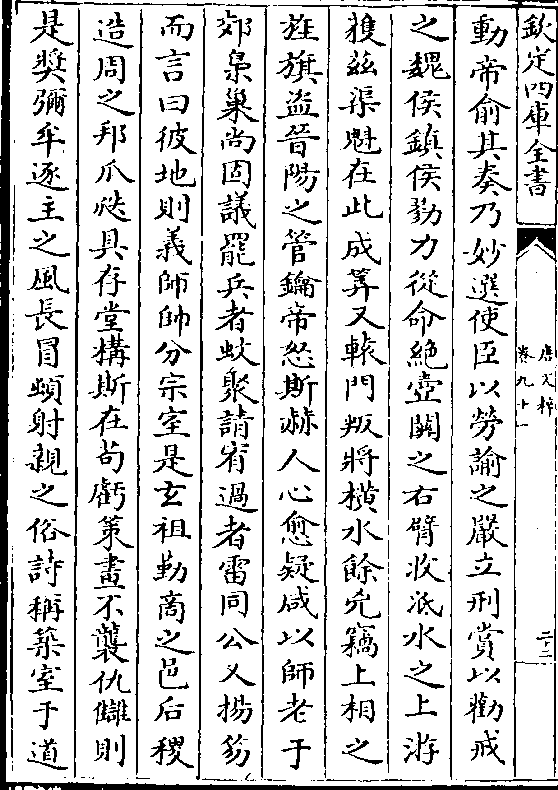 欽定四庫全書
唐文粹
卷九十一
二十二
動帝俞其奏乃妙選使臣以勞諭之嚴立刑賞以勸戒
之魏侯鎮侯勠力從命絶壺闗之右臂收泜水之上游
獲兹渠魁在此成筭又轅門叛將横水餘兇竊上相之
旌旗盗晉陽之管鑰帝怒斯赫人心愈疑咸以師老于
郊梟巢尚固議罷兵者蚊聚請宥過者雷同公乂揚笏
而言曰彼地則義師帥分宗室是玄祖勤商之邑后稷
造周之邦爪牫具存堂構斯在茍虧策畫不襲仇讎則
是奬彌牟逐主之風長冒頓射親之俗詩稱築室于道